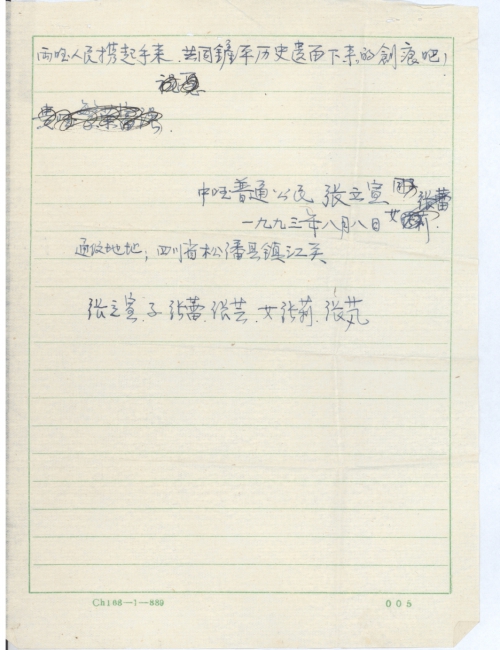 两国人民携起手来.共同鏟平历史遗留下来的創痕吧!
祝愿
中国普通公民 张立宣 同子 张蕾
一九九三年八月八日 女 张莉.
通汶地址；四川省松潘县镇江关
张立宣.子张蕾.张芸.女张莉.张芃
Ch186—1—889 005